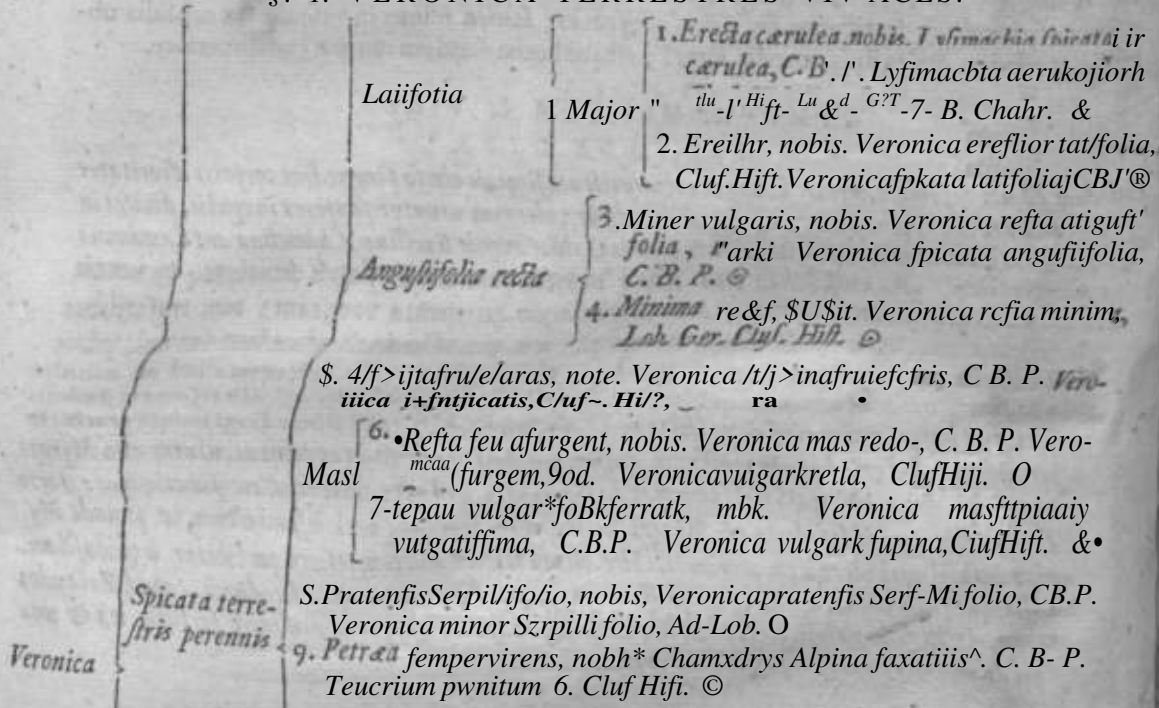 §. 1. VERONICÆ TERRESTRES VIVACES.
1. Erecta cærulea nobis. Lysimachia spicata i ir
cærulea, C.B'. /'. Lyfimacbta aerukojiorh
Laiifotia
1 Major " tlu-l' Hift- Lu&d- G?T-7- B. Chahr. &
2. Ereilhr, nobis. Veronica ereflior tat/folia,
Cluf.Hift.Veronicafpkata latifoliajCBJ'®
3.Miner vulgaris, nobis. Veronica refta atiguft'
folia, r"arki Veronica fpicata angufiifolia,
Angustifolia recta
C. B. P. ☉
4. Minima re&f, $U$it. Veronica rcfia minim;,
Lob. Ger. Clus. Hist. ☉
$. 4/f>ijtafru/e/aras, note. Veronica /t/j>inafruiefcfris, C B. P. Vero-
iiica i+fntjicatis,C/uf~. Hi/?, _ ra •
6. •Refta feu afurgent, nobis. Veronica mas redo-, C. B. P. Vero-
Masl mcaa(furgem,9od. Veronicavuigarkretla, ClufHiji. O
7-tepau vulgar*foBkferratk, mbk. Veronica masfttpiaaiy
vutgatiffima, C.B.P. Veronica vulgark fupina,CiufHift. &•
Spicata terre-
S.PratenfisSerpil/ifo/io, nobis, Veronicapratenfis Serf-Mi folio, CB.P.
stris perennis
Veronica minor Szrpilli folio, Ad-Lob. O
Veronica
9. Petræa fempervirens, nobh* Chamxdrys Alpina faxatiiis^. C. B- P.
Teucrium pwnitum 6. Cluf Hifi. ©